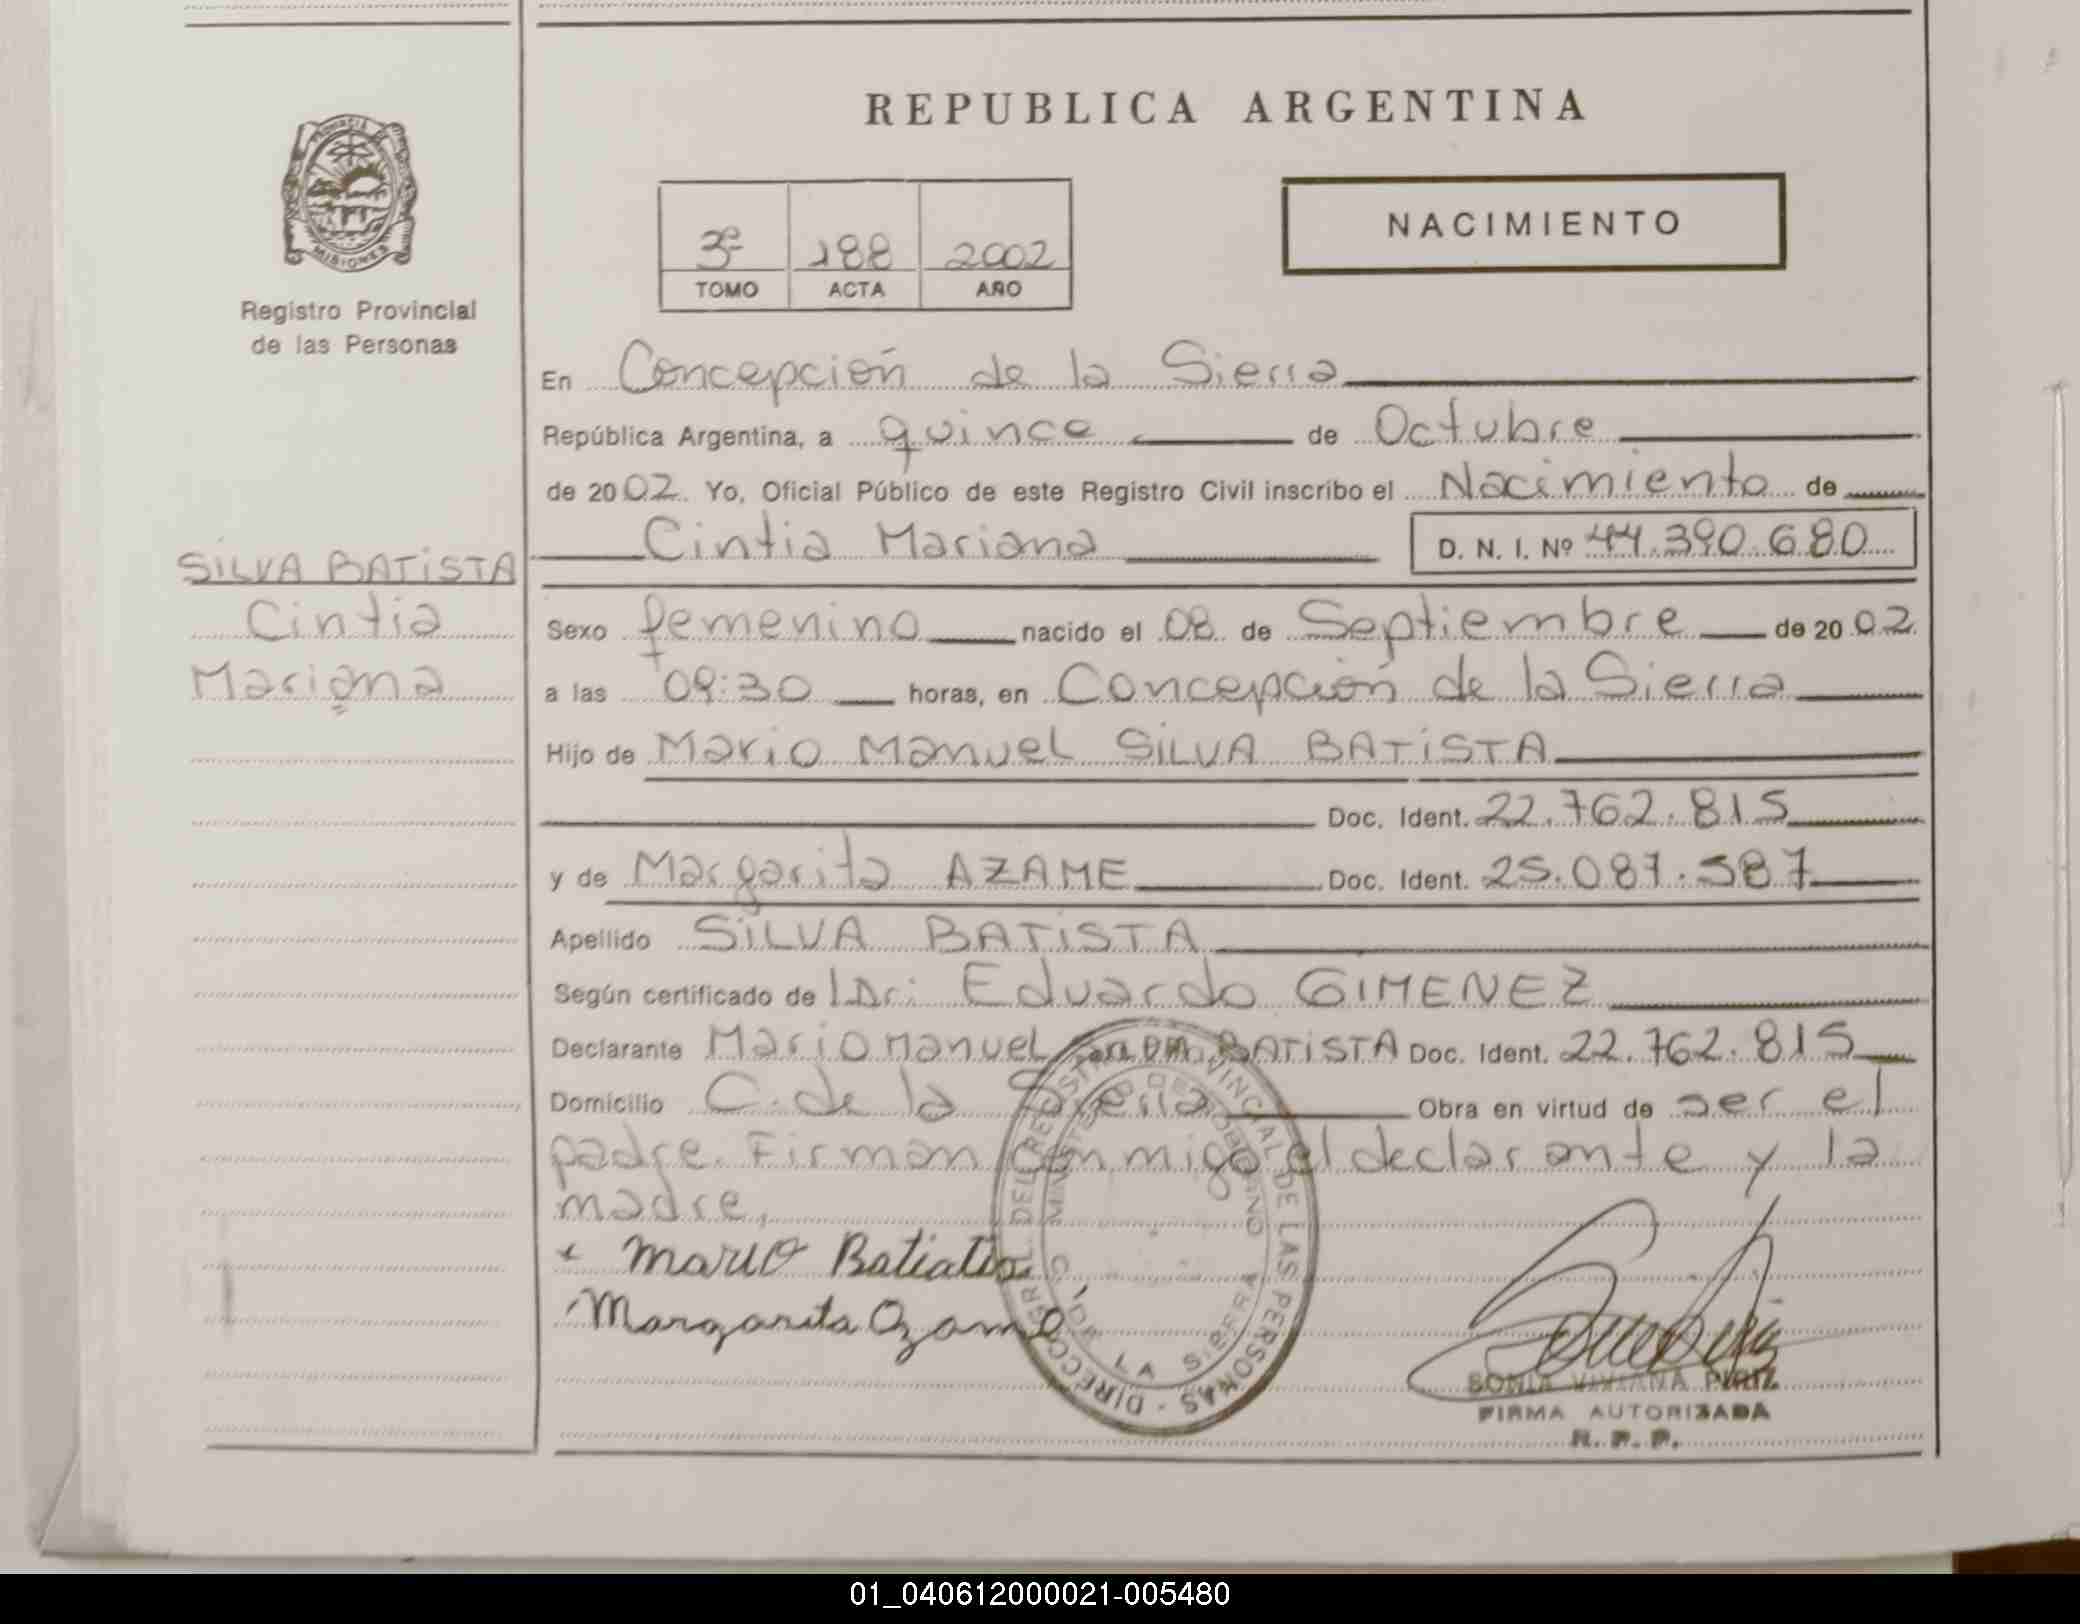 REPUBLICA ARGENTINA
PROVINCIA DE MISIONES
Registro Provincial
de las Personas
3º 188 2002
TOMO ACTA AÑO
NACIMIENTO
En Concepción de la Sierra
República Argentina, a quince de Octubre
de 2002. Yo, Oficial Público de este Registro Civil inscribo el Nacimiento de
Cintia Mariana D. N. I. Nº 44.390.680
SILVA BATISTA
Cintia
Mariana
Sexo femenino nacido el 08 de Septiembre de 2002
a las 09:30 horas, en Concepción de la Sierra
Hijo de Mario Manuel SILVA BATISTA
Doc. Ident. 22.762.815
y de Margarita AZAME Doc. Ident. 25.087.587
Apellido SILVA BATISTA
Según certificado de Dr. Eduardo GIMENEZ
Declarante Mario Manuel SILVA BATISTA Doc. Ident. 22.762.815
Domicilio C. de la Sierra Obra en virtud de ser el
padre. Firman conmigo el declarante y la
madre.
Mario Batista
Margarita Azame
DIRECC. GRL. DEL REGISTRO PROVINCIAL DE LAS PERSONAS
MINISTERIO DE GOBIERNO
C. DE LA SIERRA
SONIA VIVIANA PIRIZ
FIRMA AUTORIZADA
R. P. P.
01_040612000021-005480